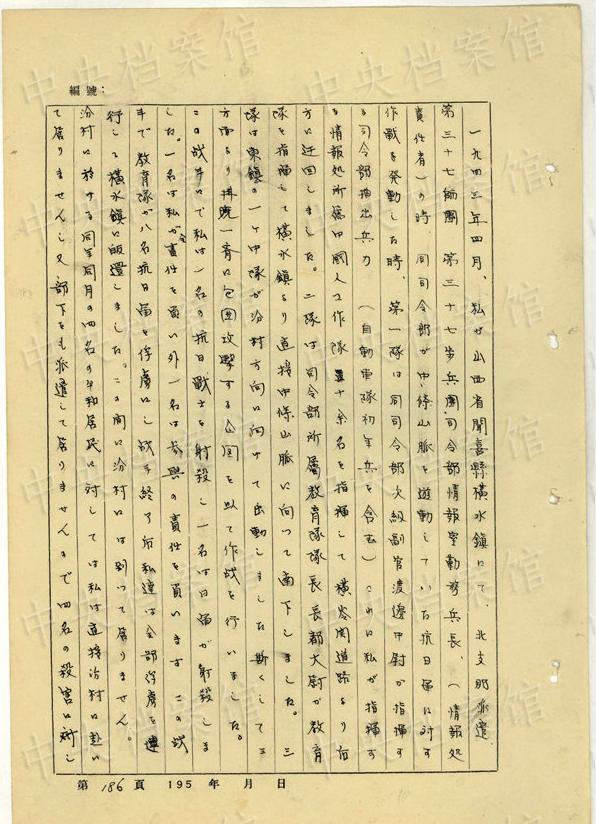 編號：
一九四三年四月、私ガ山西省聞喜縣橫水鎮にて、北支那派遣
第三十七師團 第三十七步兵團司令部情報室勤務兵長、（情報処
責任者）の時 同司令部が中條山脈を遊動していた抗日軍に対する
作戰を発動した時、第一隊は同司令部次級副官渡邊中尉が指揮す
る司令部抽出兵力 （自動車隊初年兵を含む） これに私が指揮す
る情報処所属中國人工作隊 十余名を指揮して 橫嶺関道路より右
方に迂回しました。二隊は司令部所屬教育隊隊長長部大尉が教育
隊を指揮して橫水鎮より直接中條山脈に向って南下しました。三
隊は東鎮の一ヶ中隊が汾村方向に向けて出動しました 斯くして三
方面より拂曉一斉に包囲攻擊する企図を以て作战を行いました。
この战斗に於て私は一名の抗日戰士を射殺し一名は日軍が射殺しま
した。一名は私が責任を負い外一名は参與の責任を負います この战
斗で教育隊が八名抗日軍を俘虜にし战斗終了后私達は全部俘虜を連
行して橫水鎮に皈還しました。この間に汾村には到って居りません。
汾村に於ける同年同月の四名の平和居民に対しては私は直接汾村に赴い
て居りませんし又部下をも派遣して居りませんので四名の殺害に対し
第 186 頁 195 年 月 日
中央档案馆